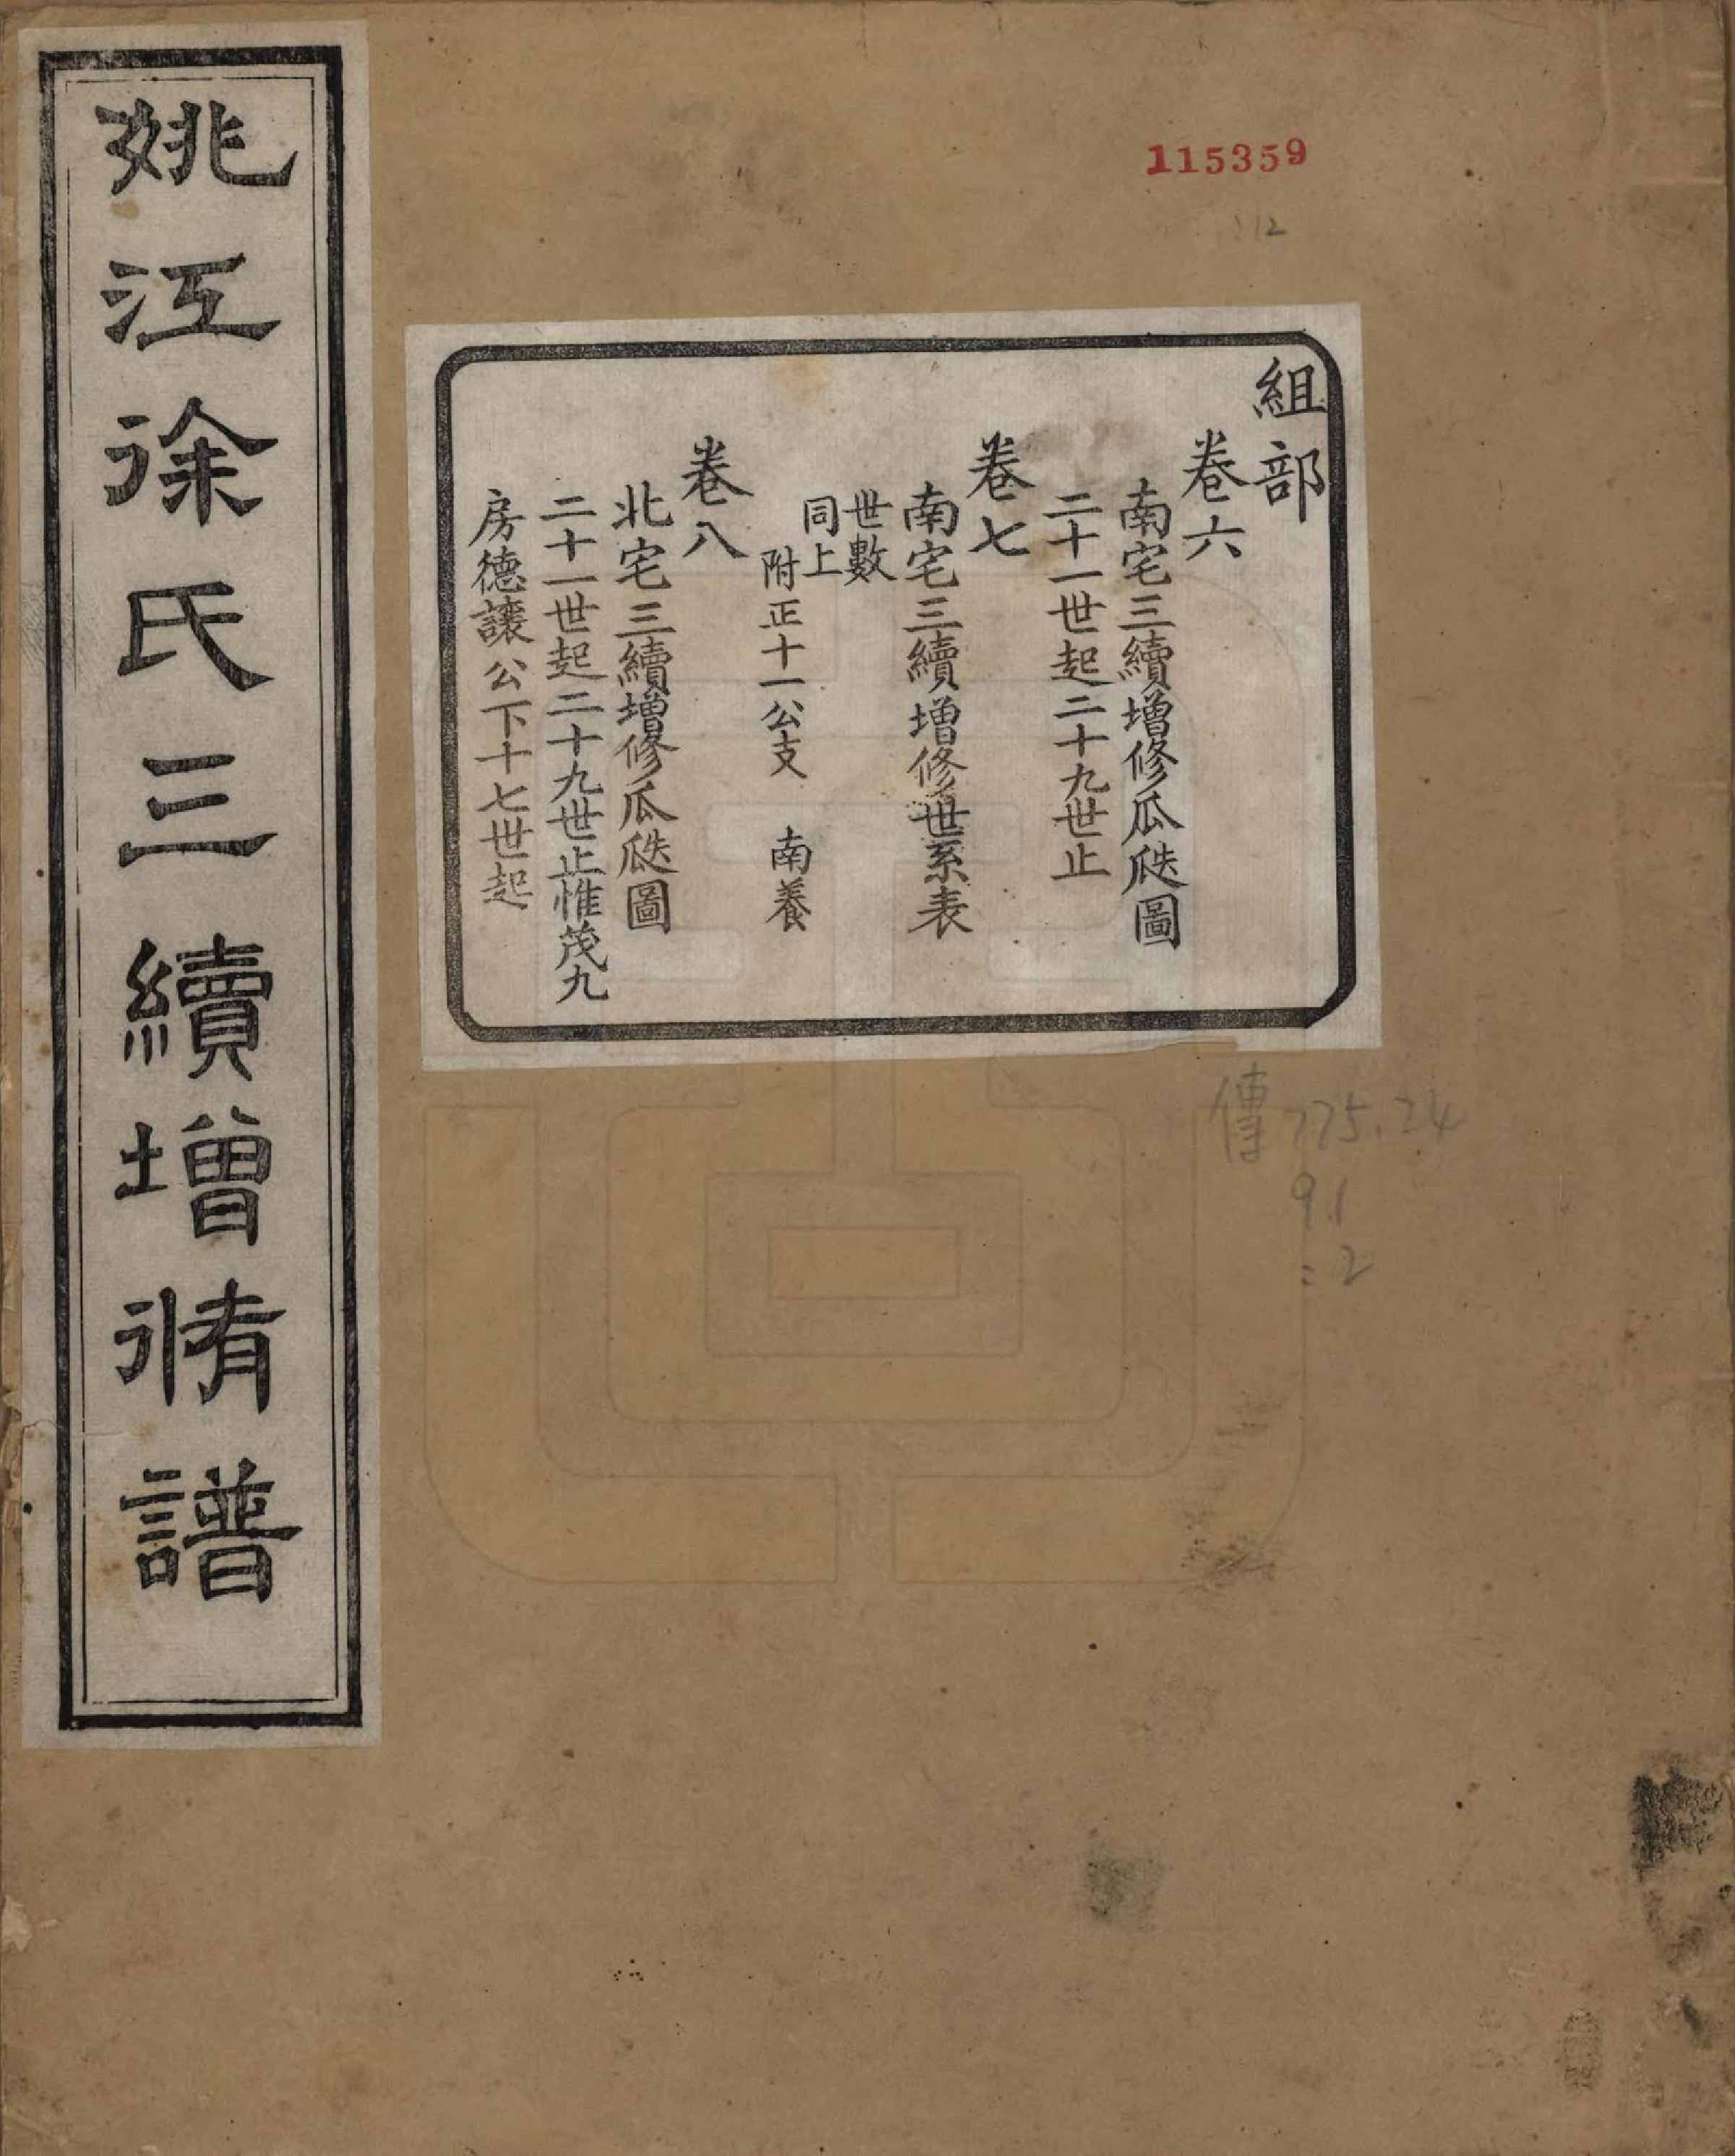 姚江徐氏三續增脩譜
115359
112
組部
卷六
南宅三續增修瓜瓞圖
二十一世起二十九世止
卷七
南宅三續增修世系表
世數
同上
附正十一公支　南養
卷八
北宅三續增修瓜瓞圖
二十一世起二十九世止惟茂九
房德讓公下十七世起
傳 775.24
91
:2